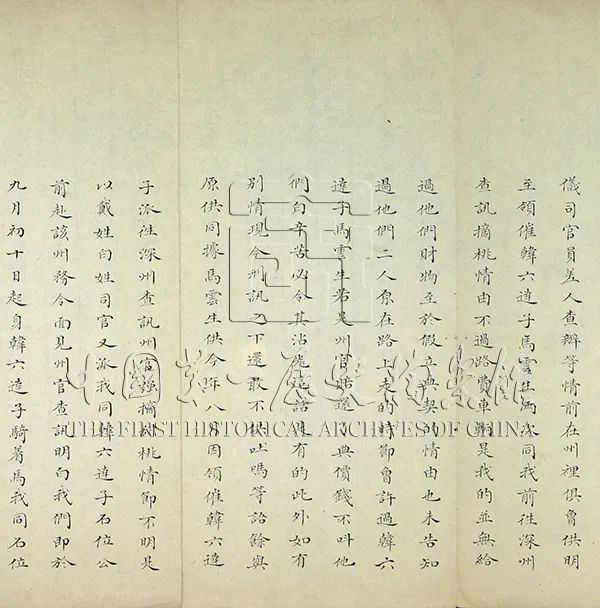 儀司官員差人查辦等情前在州裡俱曾供明
至領催韓六達子馬雲生兩次同我前往深州
查訊摘桃情由不過路費車輛是我的並無給
過他們財物至於假立典契的情由也未告知
過他們二人原在路上走的時節曾許過韓六
達子馬雲生若是州官給還了典價錢不呌他
們白辛苦必令其沾光是話是有的此外如有
別情現今刑訊之下還敢不供吐嗎等語餘與
原供同據馬雲生供今年八月因領催韓六達
子派往深州查訊州官強摘樹桃情節不明是
以戴姓白姓司官又派我同韓六達子石位公
前赴該州務令面見州官查訊明白我們即於
九月初十日起身韓六達子騎着馬我同石位
中國第一歷史檔案館
THE FIRST HISTORICAL ARCHIVES OF CHINA